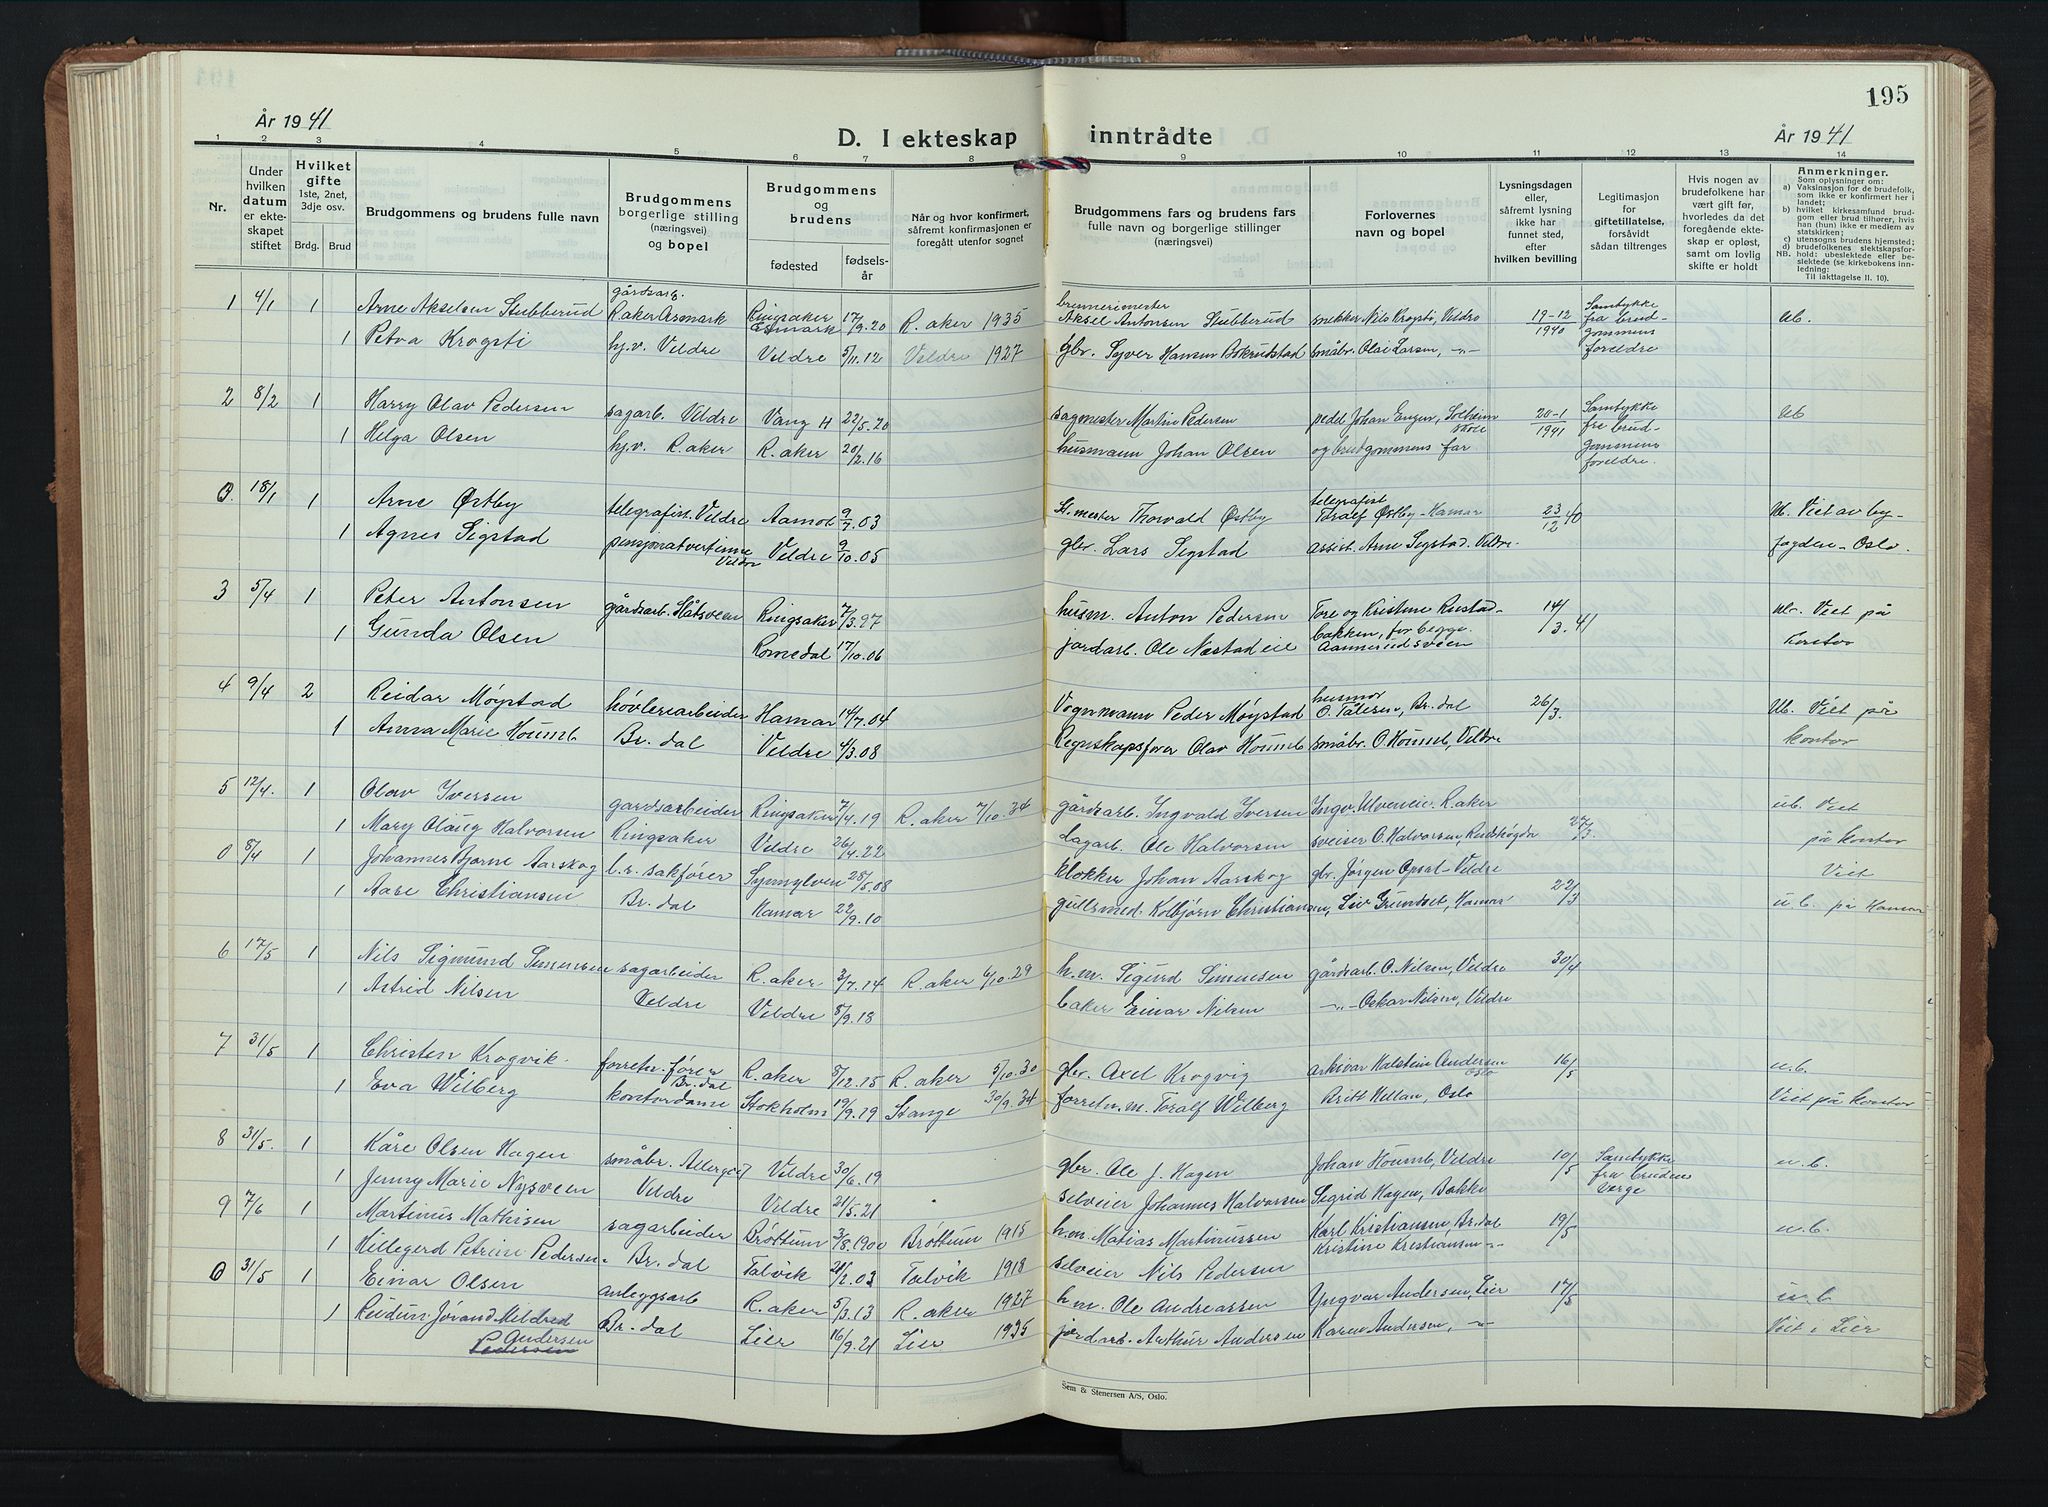 195
År 1941
D. I ekteskap inntrådte
År 1941
1 2 3 4 5 6 7 8 9 10 11 12 13 14
Nr.
Under hvilken datum er ekteskapet stiftet
Hvilket gifte 1ste, 2net, 3dje osv.
Brdg. Brud
Brudgommens og brudens fulle navn
Brudgommens borgerlige stilling (næringsvei) og bopel
Brudgommens og brudens
fødested
fødselsår
Når og hvor konfirmert, såfremt konfirmasjonen er foregått utenfor sognet
Brudgommens fars og brudens fars fulle navn og borgerlige stillinger (næringsvei)
Forlovernes navn og bopel
Lysningsdagen eller, såfremt lysning ikke har funnet sted, efter hvilken bevilling
Legitimasjon for giftetillatelse, forsåvidt sådan tiltrenges
Hvis nogen av brudefolkene har vært gift før, hvorledes da det foregående ekteskap er opløst, samt om lovlig skifte er holdt
Anmerkninger.
Som oplysninger om:
a) Vaksinasjon for de brudefolk, som ikke er konfirmert her i landet;
b) hvilket kirkesamfund brudgom eller brud tilhører, hvis han (hun) ikke er medlem av statskirken;
c) utensogns brudens hjemsted;
d) brudefolkenes slektskapsforhold: ubeslektede eller beslektede (se kirkebokens innledning:
NB.
Til iakttagelse II. 10).
1 4/1 1 Arne Akselsen Stubberud gårdsarb. R.aker Åsmark Ringsaker Åsmark 17/9.20 R. aker 1935 brennerimester Aksel Antonsen Stubberud snekker Nils Krogsti, Veldre 19-12 1940 Samtykke fra brudgommens foreldre ub.
1 Petra Krogsti hj.v. Veldre Veldre 5/11.12 Veldre 1927 gbr. Syver Hansen småbr. Olai Larsen, -"-
2 8/2 1 Harry Olav Pedersen sagarb. Veldre Vang H 22/5.20 sagmester Martin Pedersen pedel Johan Engen, Solheim skole 20-1 1941 Samtykke fra brudgommens foreldre. ub
1 Helga Olsen hj.v. R.aker R. aker 20/2.16 husmann Johan Olsen og brudgommens far
0. 18/1 1 Arne Østby telegrafist. Veldre Aamot 9/7.03 St.mester Thorvald Østby telegrafist Toralf Østby - Hamar 23/12 40 ub. Viet av by-
1 Agnes Sigstad pensjonatvertinne Veldre Veldre 9/10.05 gbr. Lars Sigstad assist. Arne Sigstad. Veldre. fogden - Oslo.
3 5/4 1 Peter Antonsen gårdsarb. Håtsveen Ringsaker 7/3.97 husm. Anton Pedersen Tore og Kristine Rustad- 14/3.41 ub. Viet på
1 Gunda Olsen Romedal 17/10.06 jordarb. Ole Næstadeie bakken, for begge. Aamerudsveen kontor
4 9/4 2 Reidar Møystad høvleriarbeider Hamar 14/7.04 Vognmann Peder Møystad husmor O. Tålesen, Br.dal 26/3. ub. Viet på
1 Anna Marie Houmb Br. dal Veldre 4/3.08 Regnskapsfører Olav Houmb småbr. O. Houmb, Veldre kontor
5 12/4. 1 Olav Iversen gardsarbeider Ringsaker 7/4.19 R. aker 7/10.34 gårdsarb. Ingvald Iversen Ingv. Ulveneie. R.aker 27/3. ub. Viet
1 Mary Olaug Halvorsen Ringsaker Veldre 26/4.22 dagarb. Ole Halvorsen sveiser O. Halvorsen, Rudshøgda på kontor
0 8/4 1 Johannes Bjarne Aarskog l.r. sakfører Synnylven 28/5.08 klokker Johan Aarskog gbr. Jørgen Opsal - Veldre 22/3 Viet
1 Aase Christiansen Br. dal Hamar 22/9.10 gullsmed. Kolbjørn Christiansen, Liv Grundset, Hamar u.b. på Hamar
6 17/5 1 Nils Sigmund Simensen sagarbeider R. aker 3/7.14 R. aker 6/10.29 h.m. Sigurd Simensen gårdsarb. O. Nilsen, Veldre 30/4
1 Astrid Nilsen Veldre Veldre 8/9.18 baker Einar Nilsen -"- Oskar Nilsen, Veldre
7 31/5 1 Christen Krogvik. forretn. fører Br.dal R. aker 8/12.15 R. aker 5/10.30 gbr. Axel Krogvig arkivar Halstein Andersen Oslo 16/5 u.b.
1 Eva Wilberg kontordame Stokholm 19/9.19 Stange 30/9.34 forretn.m. Toralf Wilberg Britt Hellan, Oslo Viet på kontor
8 31/5. 1 Kåre Olsen Hagen småbr. Veldre 30/6.19 gbr. Ole J. Hagen Johan Houmb, Veldre 10/5 Samtykke fra brudens verge u.b.
1 Jenny Marie Nysveen Veldre Veldre 21/5.21 selveier Johannes Halvorsen Sigrid Hagen, Bakke
9 7/6 1 Martinus Mathisen sagarbeider Brøttum 3/8.1900 Brøttum 1915 h.m. Matias Martinussen Karl Kristiansen, Br.dal 19/5 u.b.
1 Hillegerd Petrine Pedersen. Br. dal Talvik 21/2.03 Talvik 1918 selveier Nils Pedersen Kristine Kristiansen -"-
0 31/5 1 Einar Olsen anleggsarb R. aker 5/3.13 R. aker 1927 h.m. Ole Andreassen Yngvar Andersen, Lier 17/5 u.b
1 Reidun Jørand Mildred Andersen Pedersen Br. dal Lier 16/9.21 Lier 1935 jordarb. Arthur Andersen Karen Andersen, -"- Viet i Lier
Sem & Stenersen A/S, Oslo.